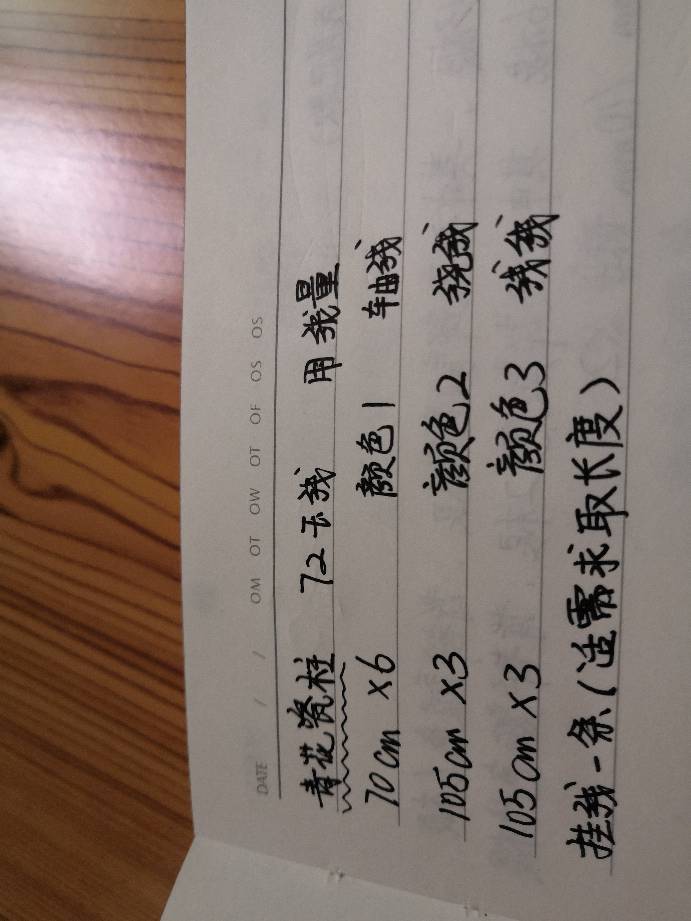 DATE / / OM OT OW OT OF OS OS
青花瓷柱 72玉线 用线量
70cm ×6 颜色1 轴线
105cm ×3 颜色2 绕线
105cm ×3 颜色3 线线
挂线一条(适需求取长度)